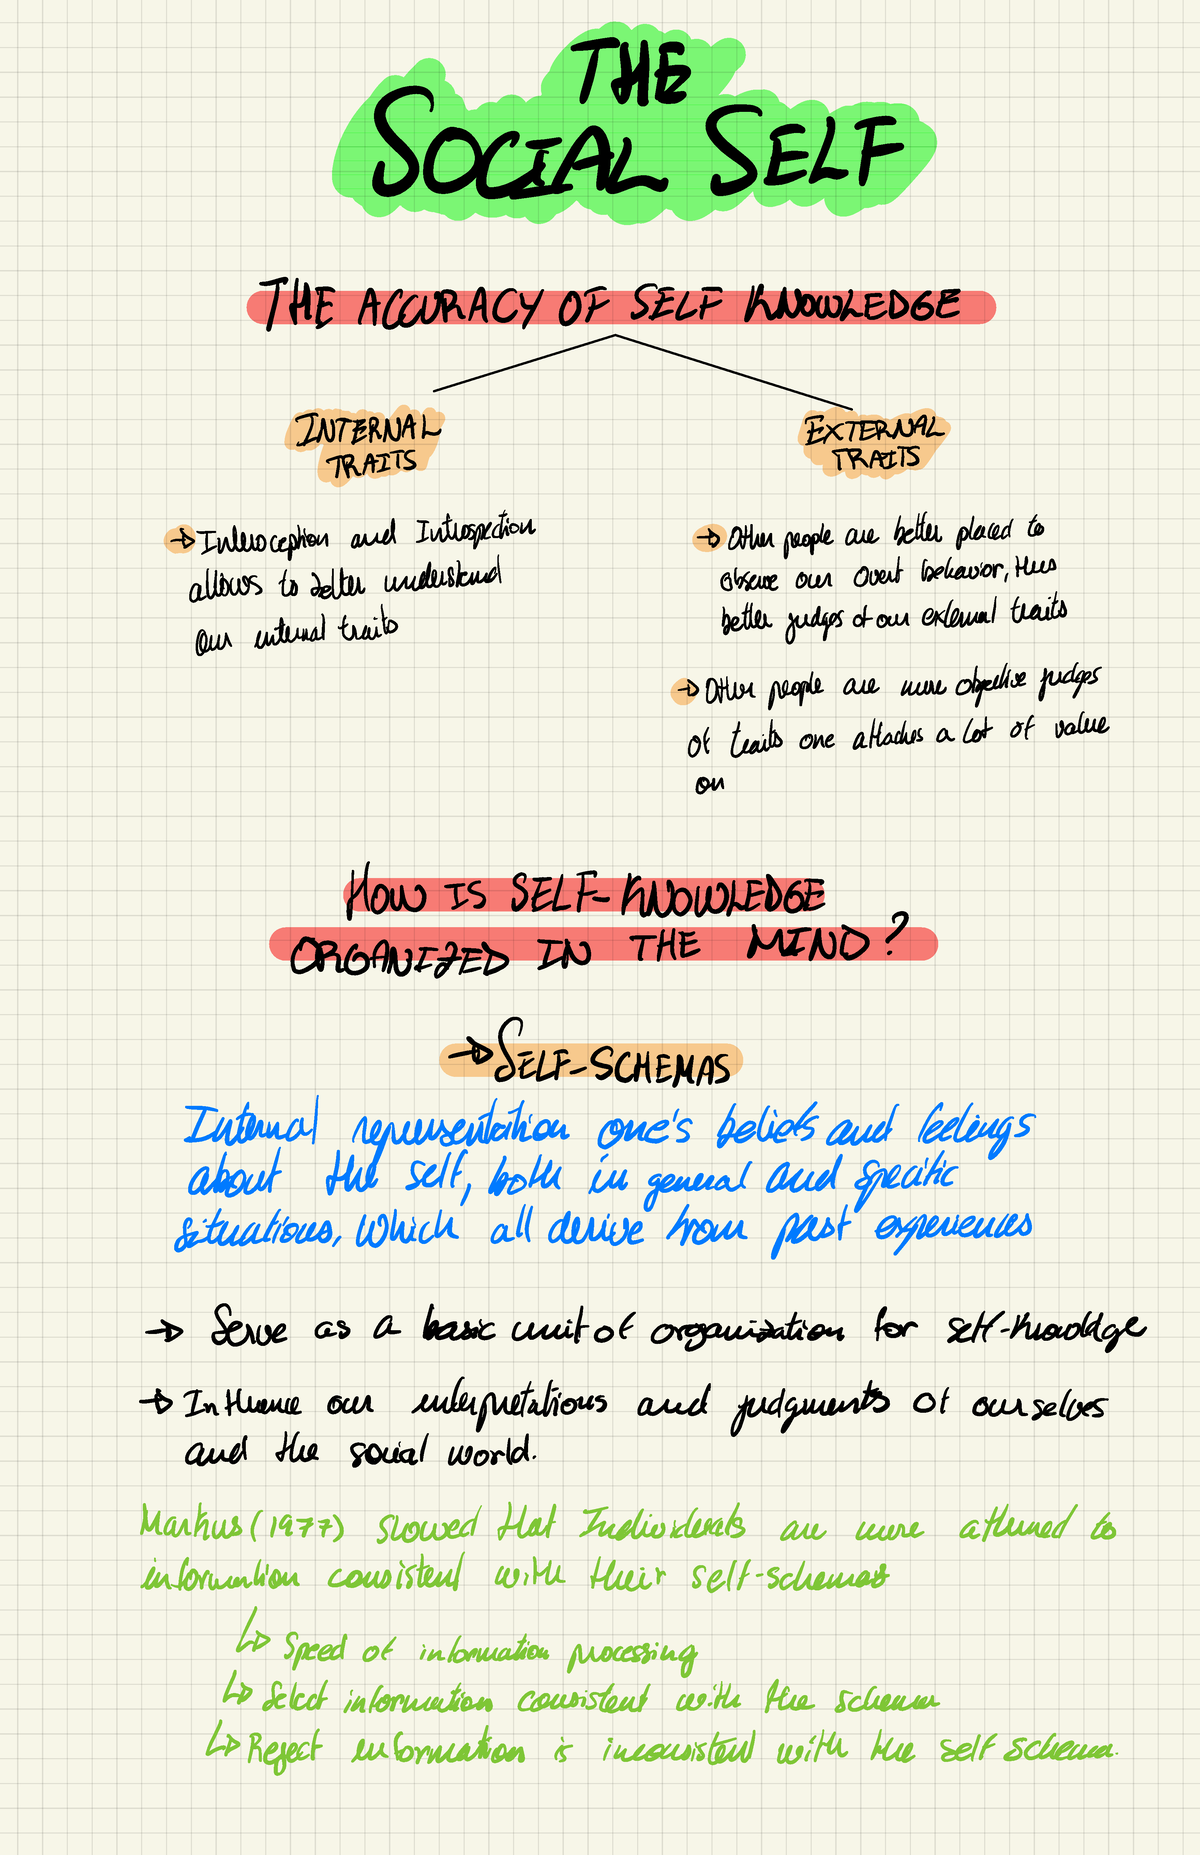 THE
SOCIAL SELF
THE ACCURACY OF SELF KNOWLEDGE
INTERNAL
TRAITS
→ Interoception and Introspection
allows to better understand
our internal traits
EXTERNAL
TRAITS
→ Other people are better placed to
observe our overt behavior, thus
better judges of our external traits
→ Other people are more objective judges
of traits one attaches a lot of value
on
HOW IS SELF-KNOWLEDGE
ORGANIZED IN THE MIND?
→ SELF-SCHEMAS
Internal representation one's beliefs and feelings
about the self, both in general and specific
situations, which all derive from past experiences
→ Serve as a basic unit of organization for self-knowldge
→ Influence our interpretations and judgments of ourselves
and the social world.
Markus (1977) slowed that Individuals are more attuned to
information consistent with their self-schemas
↳ Speed of information processing
↳ Select information consistent with the schema
↳ Reject information is inconsistent with the self schema.